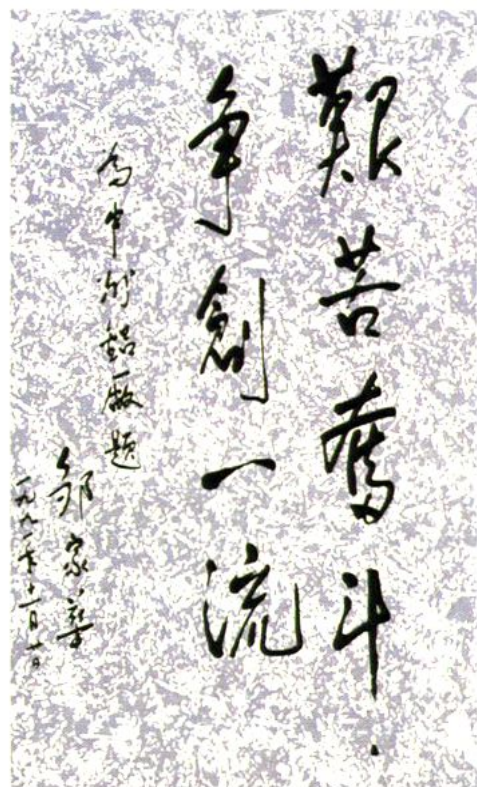 艱苦奮斗、
争創一流
為中州鋁廠題
鄒家華
一九九一年十一月廿日